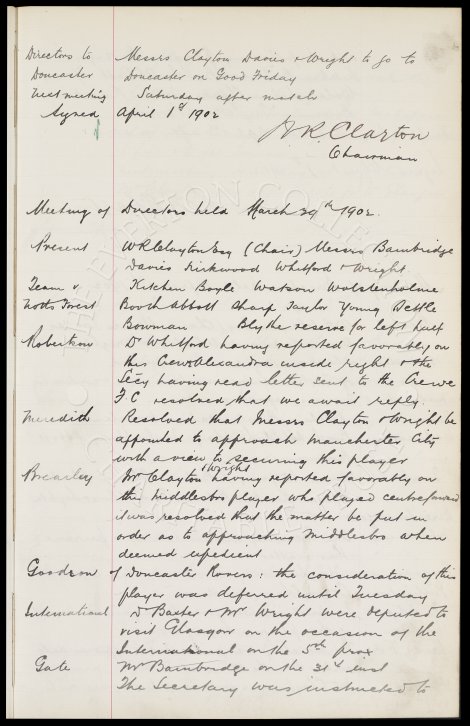 Directors to Messrs Clayton Davies & Wright to go to
Doncaster Doncaster on Good Friday
next meeting Saturday after match
Signed April 1st 1902
W R Clayton
Chairman
Meeting of Directors held March 29th 1902.
Present W R Clayton Esq (Chair) Messrs Bainbridge
Davies Kirkwood Whitford & Wright.
Team v Kitchen Boyle Watson Wolstenholme
Notts Forest Booth Abbott Sharp Taylor Young Settle
Bowman Blythe reserve for left half
Robertson Dr Whitford having reported favorably on
this Crewe Alexandra inside right & the
Secy having read letter sent to the Crewe
F C resolved that we await reply.
Meredith Resolved that Messrs Clayton & Wright be
appointed to approach Manchester City
with a view to securing this player
Brearley Mr Clayton & Wright having reported favorably on
this Middlesbro player who played centre forward
it was resolved that the matter be put in
order as to approaching Middlesbro when
deemed expedient
Goodson of Doncaster Rovers: the consideration of this
player was deferred until Tuesday
International Dr Baxter & Mr Wright were deputed to
visit Glasgow on the occasion of the
International on the 5th prox
Gate Mr Bainbridge on the 31st inst
The Secretary was instructed to